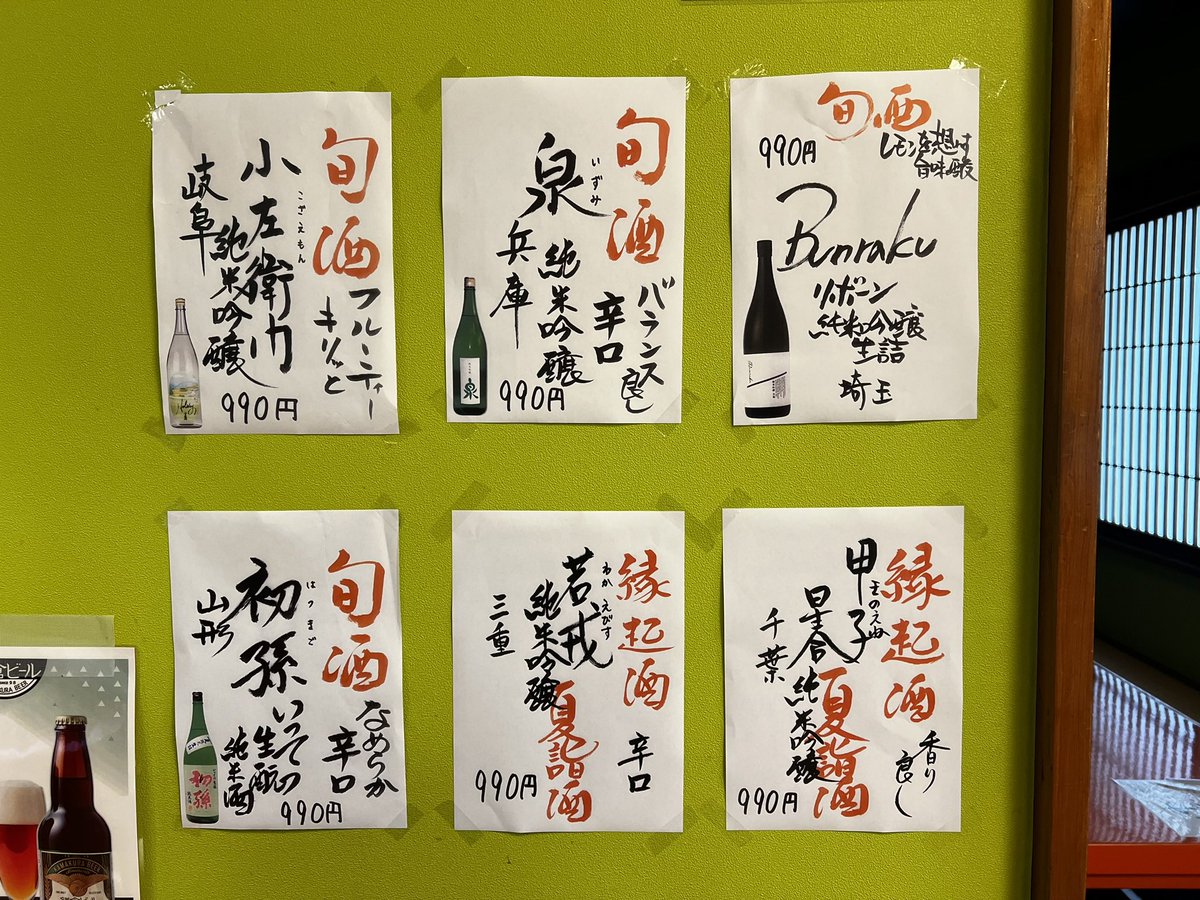 旬酒
フルーティー
キリッと
こざえもん
小左衛門
純米吟醸
岐阜
990円
旬酒
バランス良し
辛口
いずみ
泉
純米吟醸
兵庫
990円
泉
旬酒
レモンを想わす
旨味酸
990円
Bunraku
リボーン
純米吟醸
生詰
埼玉
旬酒
なめらか
辛口
はつまご
初孫
いってつ
生酛
純米酒
山形
990円
初孫
縁起酒
辛口
わかえびす
若戎
純米吟醸
三重
夏詣酒
990円
縁起酒
香り良し
きのえね
甲子
星合
純米吟醸
千葉
夏詣酒
990円
倉ビール
KURA BEER
KAMAKURA BEER